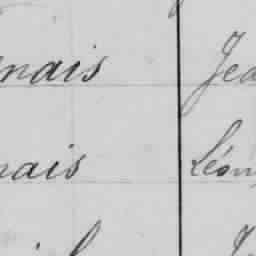 nais Jea
nais Léon